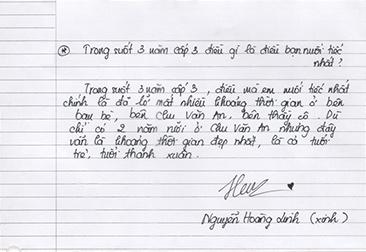 * Trong suốt 3 năm cấp 3 điều gì là điều bạn nuối tiếc
nhất?
Trong suốt 3 năm cấp 3, điều mà em nuối tiếc nhất
chính là đã lỡ mất nhiều khoảng thời gian ở bên
bạn bè, bên Chu Văn An, bên thầy cô. Dù
chỉ có 2 năm rưỡi ở Chu Văn An nhưng đây
vẫn là khoảng thời gian đẹp nhất, là cả tuổi
trẻ, tuổi thanh xuân.
Nguyễn Hoàng Linh (xinh)